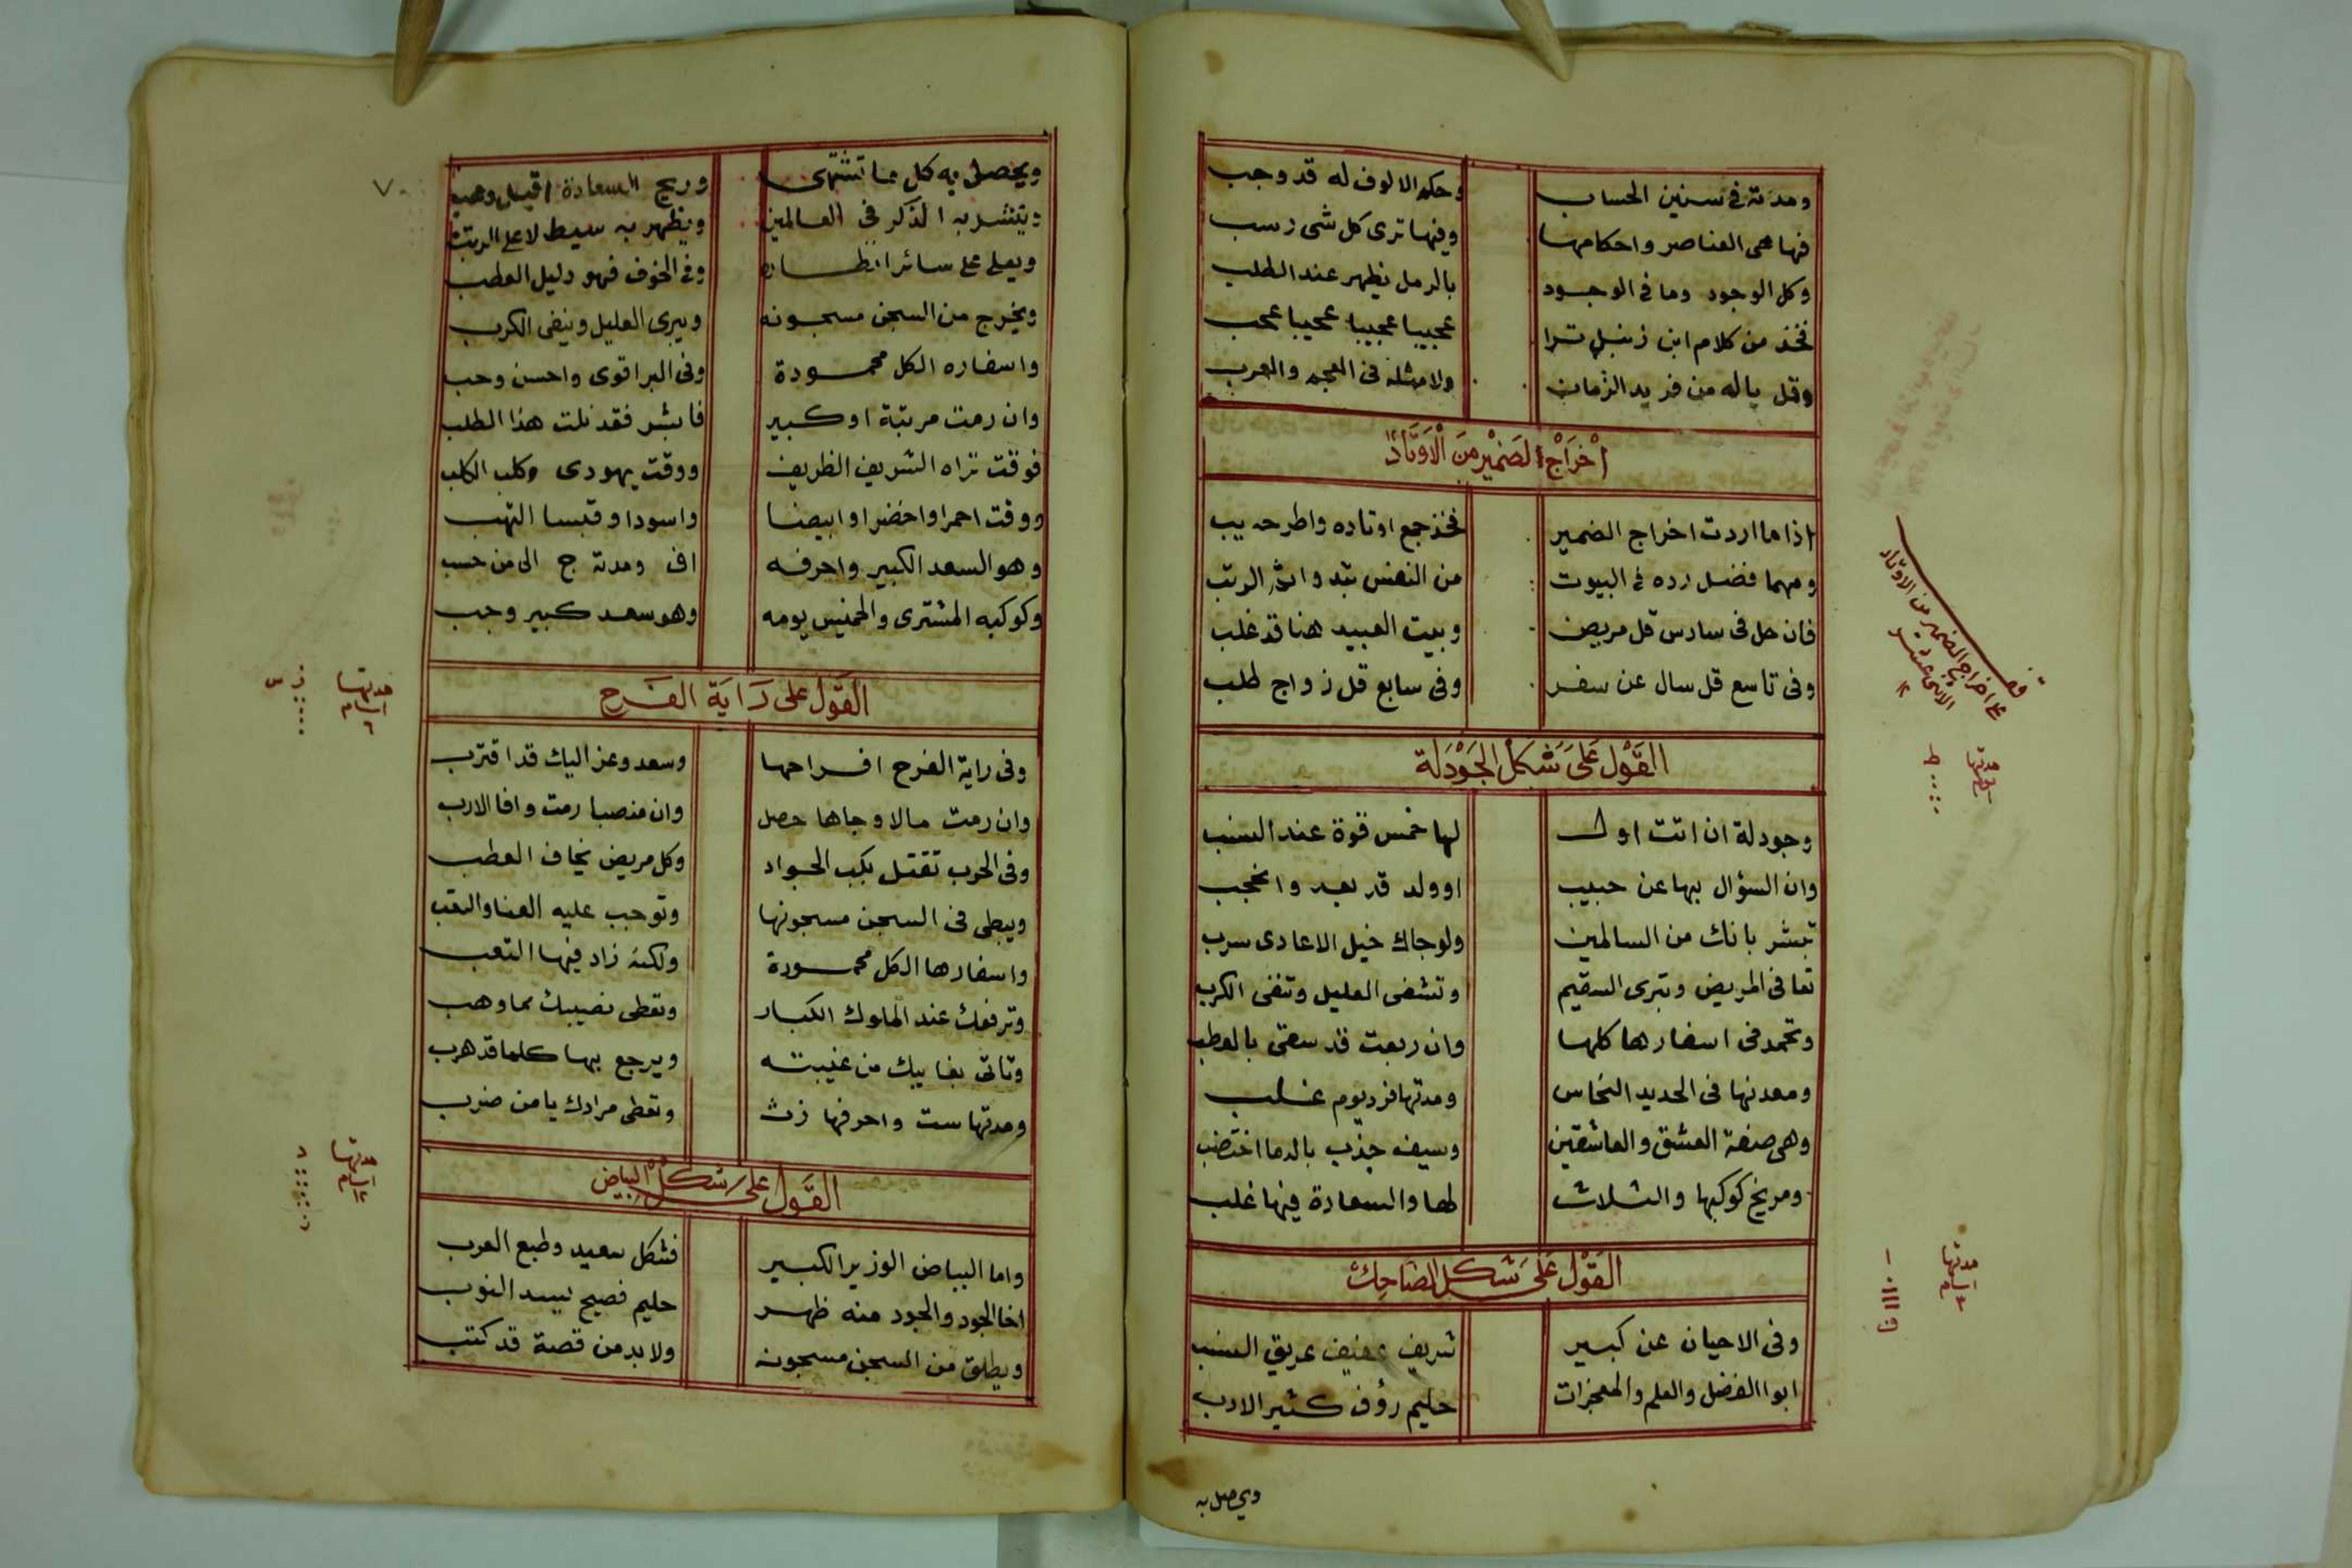 ومدته في سنين الحساب وحكم الالوف له قد وجب
فها هي العناصر واحكامها وفيها ترى كل شي رسب
وكل الوجود وما في الوجود بالرمل يظهر عند الطلب
فخذ من كلام ابن زنبل ترا عجيبا عجيبا عجيبا عجب
وقل ياله من فريد الزمان ولا مثله في العجم والعرب
اخراج الضمير من الاوتاد
اذا ما اردت اخراج الضمير فخذ جمع اوتاده واطرحه يب
ومهما فضل رده في البيوت من النفس تبدوا الرتب
فان حل في سادس قل مريض وبيت العبيد هنا قد غلب
وفي تاسع قل سال عن سفر وفي سابع قل زواج طلب
القول على شكل الجودلة
وجودلة ان اتت اولا لها خمس قوة عند النسب
وان السؤال بها عن حبيب اوولد قد بعد وانحجب
تبشر بانك من السالمين ولو جاك خيل الاعادى سرب
تعافى المريض وتبرى السقيم وتشفى العليل وتنفى الكرب
وتحمد في اسفارها كلها وان ربعت قد سقى بالعطب
ومعدنها في الحديد النحاس ومدتها فرد يوم غلب
وهي صنعة العشق والعاشقين وسيف جذب بالدما اختضب
ومريخ كوكبها والثلاث لها والسعادة فيها غلب
القول على شكل الضاحك
وفي الاحيان عن كبير شريف عفيف عريق النسب
ابوا الفضل والعلم والمعجزات حليم رؤف كثير الادب
ويحصل به
اخراج الضمير من الاوتاد
الاثنى عشر
مدتها
مدتها
ايام
٣
ويحصل به كل ما تشتهى وريح السعادة اقبل وهب
وينتشر به الذكر في العالمين ويظهر به سيط لاعلى الرتب
ويعلى على سائر انظاره وفي الخوف فهو دليل العطب
ويخرج من السجن مسجونه ويبرى العليل وينفى الكرب
واسفاره الكل محمودة وفي البر اقوى واحسن وحب
وان رمت مرتبة او كبير فابشر فقد نلت هذا الطلب
فوقت تراه الشريف الظريف ووقت يهودى وكلب الكلب
ووقت احمرا واخضرا وابيضا واسودا وقبسا التهب
وهو السعد الكبير واحرفه اف ومدته ج الى من حسب
وكوكبه المشترى والخميس يومه وهو سعد كبير وجب
القول على راية الفرح
وفي راية الفرح افراحها وسعد وعز اليك قد اقترب
وان رمت مالا وجاها حصل وان منصبا رمت وافا الارب
وفي الحرب تقتل بكب الجواد وكل مريض يخاف العطب
ويبطى في السجن مسجونها وتوجب عليه العنا والتعب
واسفارها الكل محمودة ولكنه زاد فيها التعب
وترفعك عند الملوك الكبار وتعطى نصيبك مما وهب
وتاتي بغايبك من غيبته ويرجع بها كلما قد هرب
ومدتها ست واحرفها زث وتعطى مرادك يا من ضرب
القول على شكل البياض
واما البياض الوزير الكبير فشكل سعيد وطبع العرب
اخا الجود والجود منه ظهر حليم فصيح يسد النوب
ويطلق من السجن مسجونه ولا بد من قصة قد كتب
٧٠
مدتها
ايام
٦
مدتها
ايام
١٢